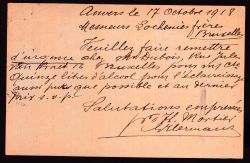 Anvers le 17 Octobre 1918
Messieurs Lochenies frères
Bruxelles
Veuillez faire remettre
d'urgence chez Mr Dubois, Rue Jules
à Bruxelles pour mon cte
Quinze litres d'alcool pour l'éclairage
aussi pur que possible et au dernier
prix s.v.p.
Salutations empressées
Mortier